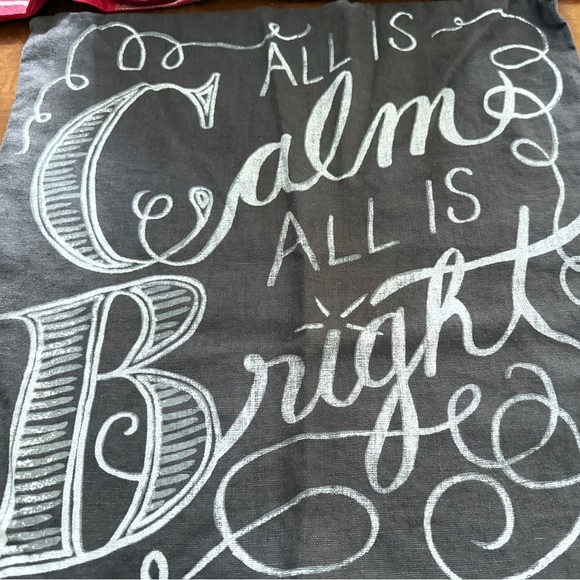 ALL IS
Calm
ALL IS
Bright